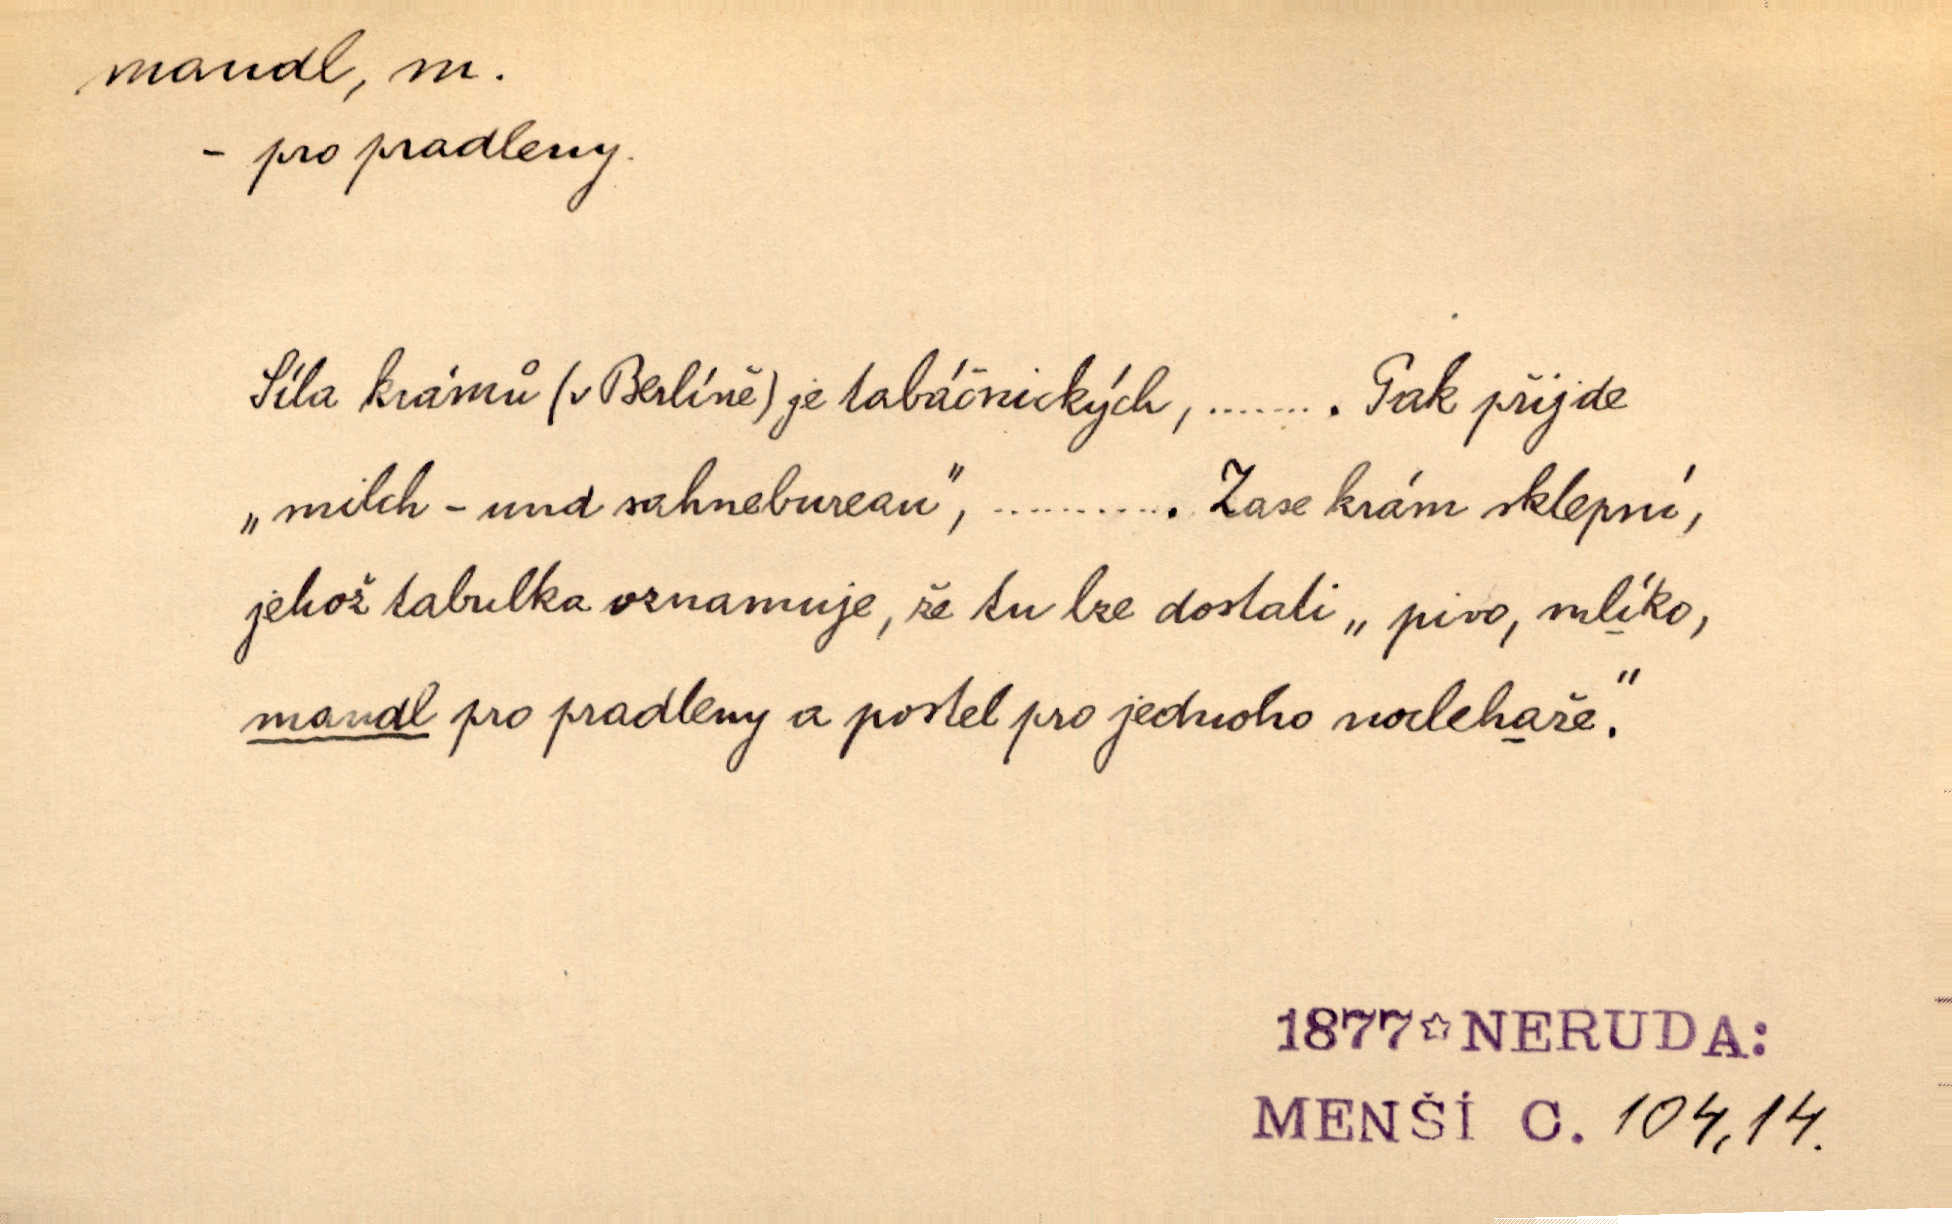 mandl, m.
- pro pradleny.
Síla krámů (v Berlíně) je tabáčnických, ........ Pak přijde
„milch - und sahnebureau", ........... Zase krám sklepní,
jehož tabulka oznamuje, že tu lze dostati „pivo, mlíko,
mandl pro pradleny a postel pro jednoho nocleháře."
1877☆NERUDA:
MENŠÍ C. 104,14.